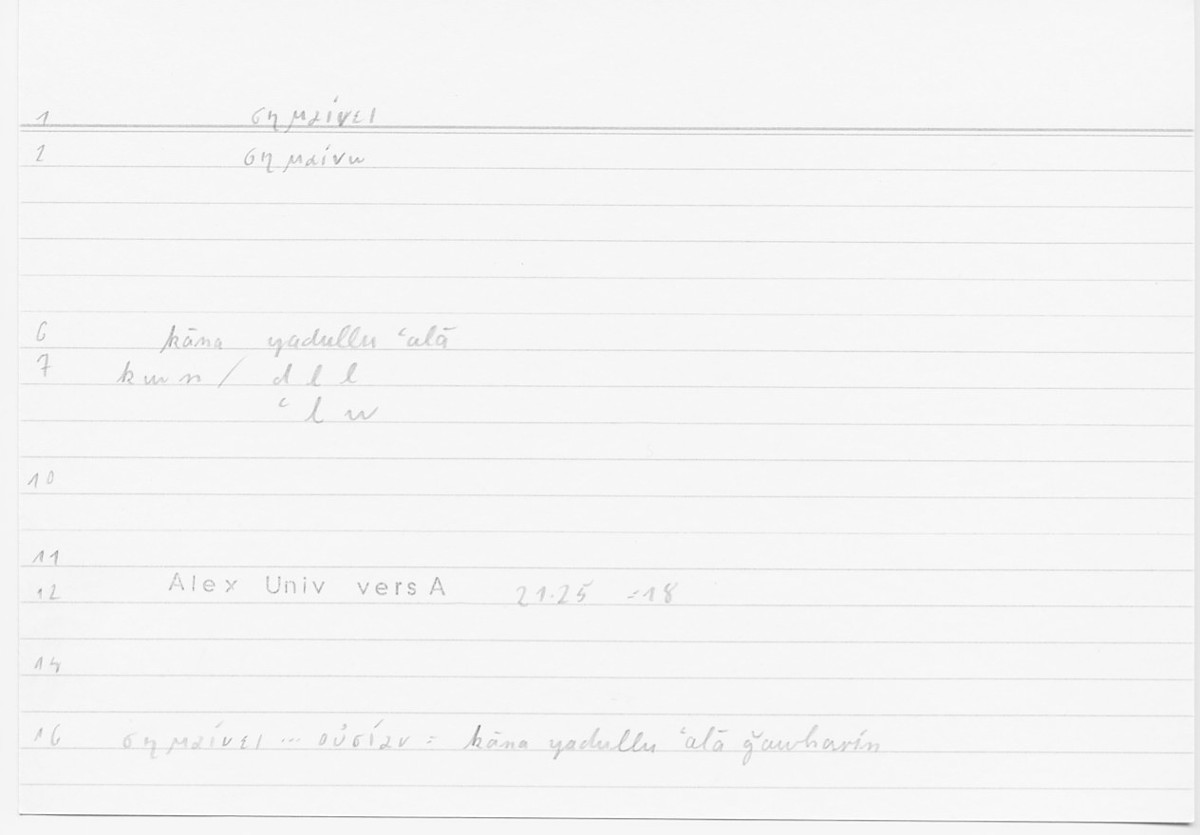 1 σημαίνει
2 σημαίνω
6 kāna yadullu ʿalā
7 kwn / dll
ʿlw
10
11
12 Alex Univ vers A 21.25 =18
14
16 σημαίνει ... οὐσίαν = kāna yadullu ʿalā ǧawharin